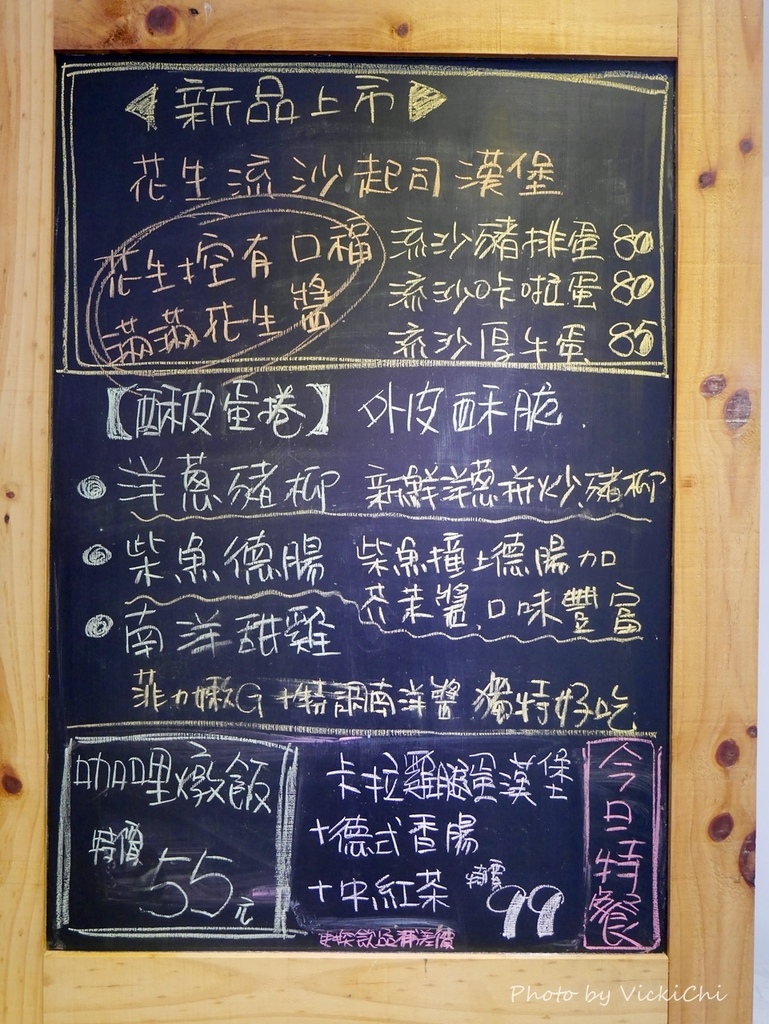 新品上市
花生流沙起司漢堡
花生控有口福
滿滿花生醬
流沙豬排蛋 80
流沙咔啦蛋 80
流沙厚牛蛋 85
【酥皮蛋捲】 外皮酥脆.
洋蔥豬柳 新鮮洋蔥拼炒豬柳
柴魚德腸 柴魚撞上德腸加
芥茉醬,口味豐富
南洋甜雞
菲力嫩G+特調南洋醬 獨特好吃
咖哩燉飯
特價 55元
卡拉雞腿蛋漢堡
+德式香腸
+中紅茶 特價99
今日特餐
更換飲品補差價
Photo by VickiChi